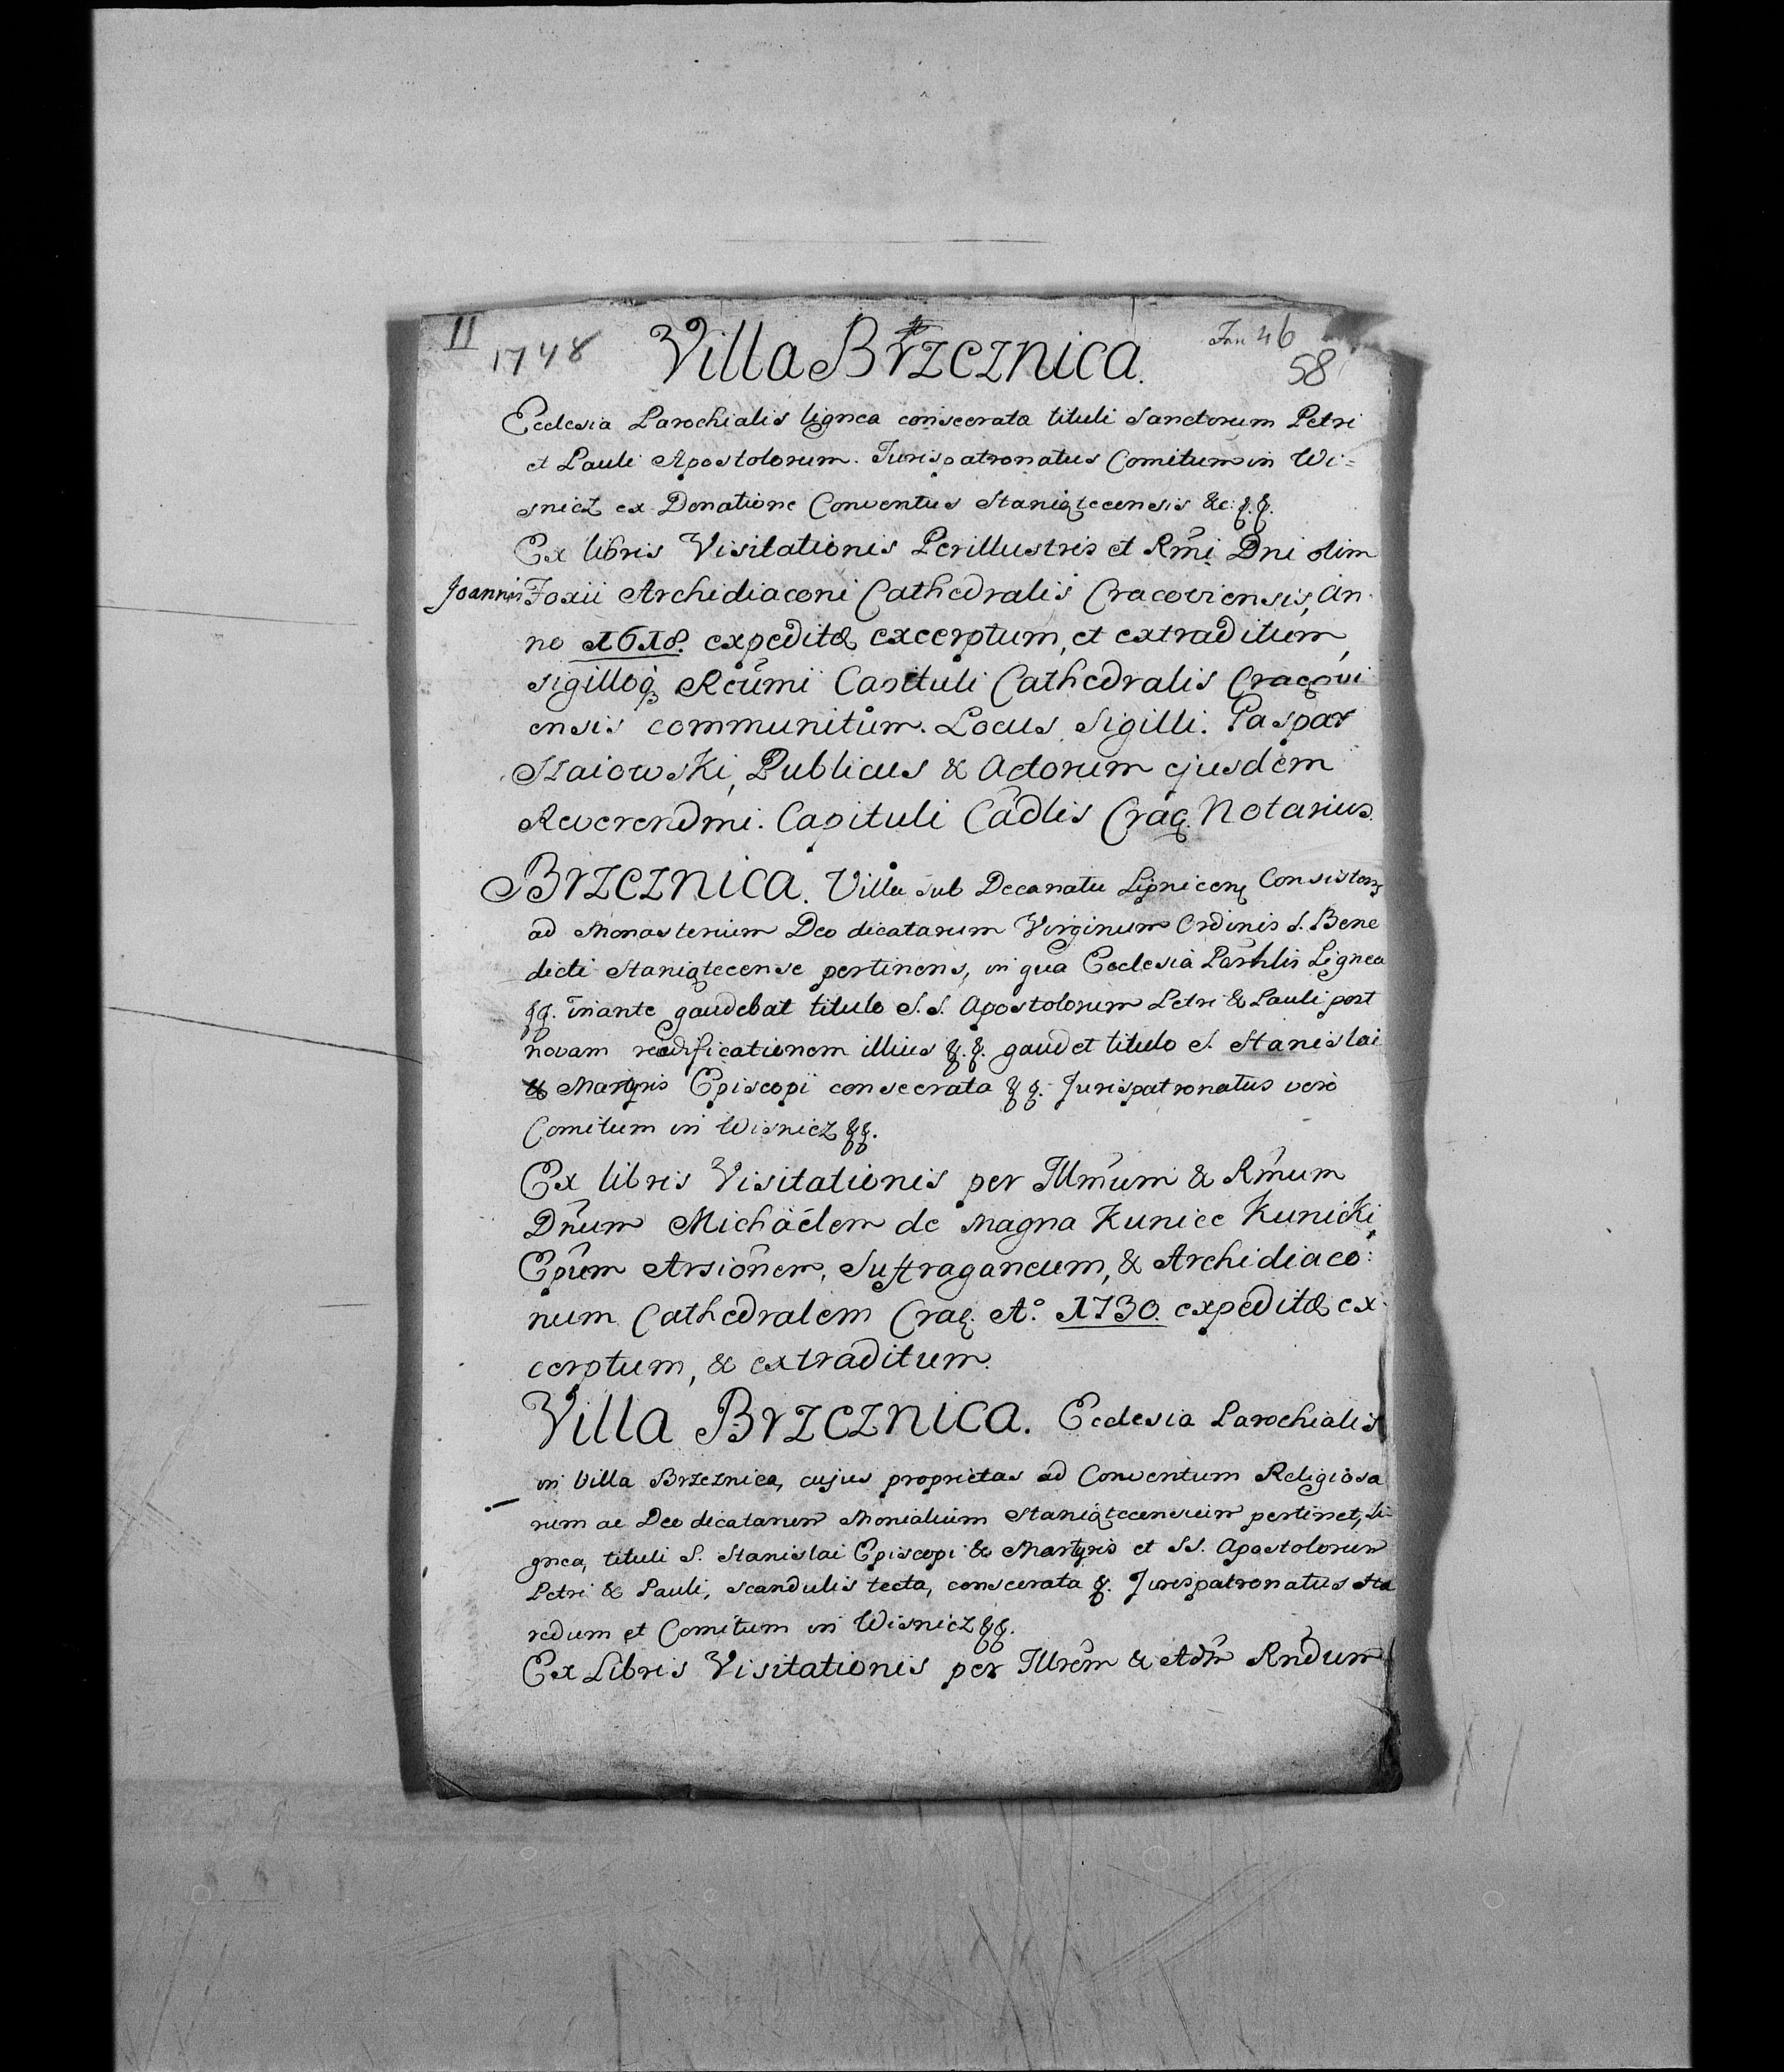 II
1748
Villa Brzcznica.
46
58
Ecclesia Parochialis lignea consecrata tituli Sanctorum Petri
et Pauli Apostolorum. Jurispatronatus Comitum in Wi=
snicz ex Donatione Conventus Staniątecensis &c: &. &.
Ex libris Visitationis Perillustris et Rm̃i Dni olim
Joannis Foxii Archidiaconi Cathedralis Cracoviensis, An
no 1618. expeditæ excerptum, et extraditum,
sigilloq; Rẽumi Capituli Cathedralis Cracovi
ensis communitum. Locus Sigilli. Gaspar
Szaiowski, Publicus & Actorum ejusdem
Reverendmi. Capituli Cãdlis Crac. Notarius.
Brzcznica. Villa sub Decanatu Lipnicen Consistens
ad Monasterium Deo dicatarum Virginum Ordinis S. Bene
dicti Staniątecense pertinens, in qua Ecclesia Parõhlis Lignea
&&. inante gaudebat titulo S.S. Apostolorum Petri & Pauli post
novam reædificationem illius &. &. gaudet titulo S. Stanislai
& Martyris Episcopi consecrata & &. Jurispatronatus vero
Comitum in Wisnicz &&.
Ex libris Visitationis per Illm̃um & Rm̃um
Dñum Michäelem de Magna Kunice Kunicki
Ep̃um Arsiõnen, Suffraganeum, & Archidiaco:
num Cathedralem Crac. A.° 1730. expeditæ ex
cerptum, & extraditum.
Villa Brzcznica. Ecclesia Parochialis
in Villa Brzcznica, cujus proprietas ad Conventum Religiosa
rum ac Deo dicatarum Monialium Staniątecensium pertinet, Li
gnea, tituli S. Stanislai Episcopi & Martyris et SS. Apostolorum
Petri & Pauli, scandulis tecta, consecrata &. Jurispatronatus Hæ
redum et Comitum in Wisnicz &&.
Ex Libris Visitationis per Illrẽm & Adm̃ Rñdum